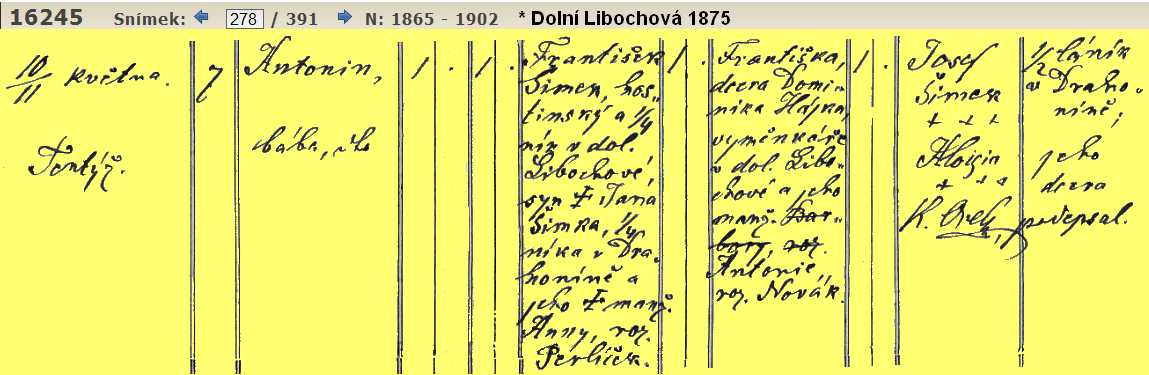 16245 Snímek: 278 / 391 N: 1865 - 1902 * Dolní Libochová 1875
10/11 května.
Tentýž.
7
Antonin,
bába,
1 . 1 .
František
Šimek, hos-
tinský a 1/4
ník v dol.
Libochové,
syn ‡ Jana
Šimka, 1/4
níka v Dra-
honíně a
jeho ‡ manž.
Anny, roz.
Perlíček.
1 .
Františka,
dcera Domi-
nika Hájka,
výměnkáře
v dol. Libo-
chové a jeho
manž. Bar-
bory, roz.
Antonie,
roz. Novák.
1 .
Josef
Šimek
+ + +
Aloizia
+ + +
K.
1/2 láník
v Draho-
níně;
jeho
dcera
podepsal.